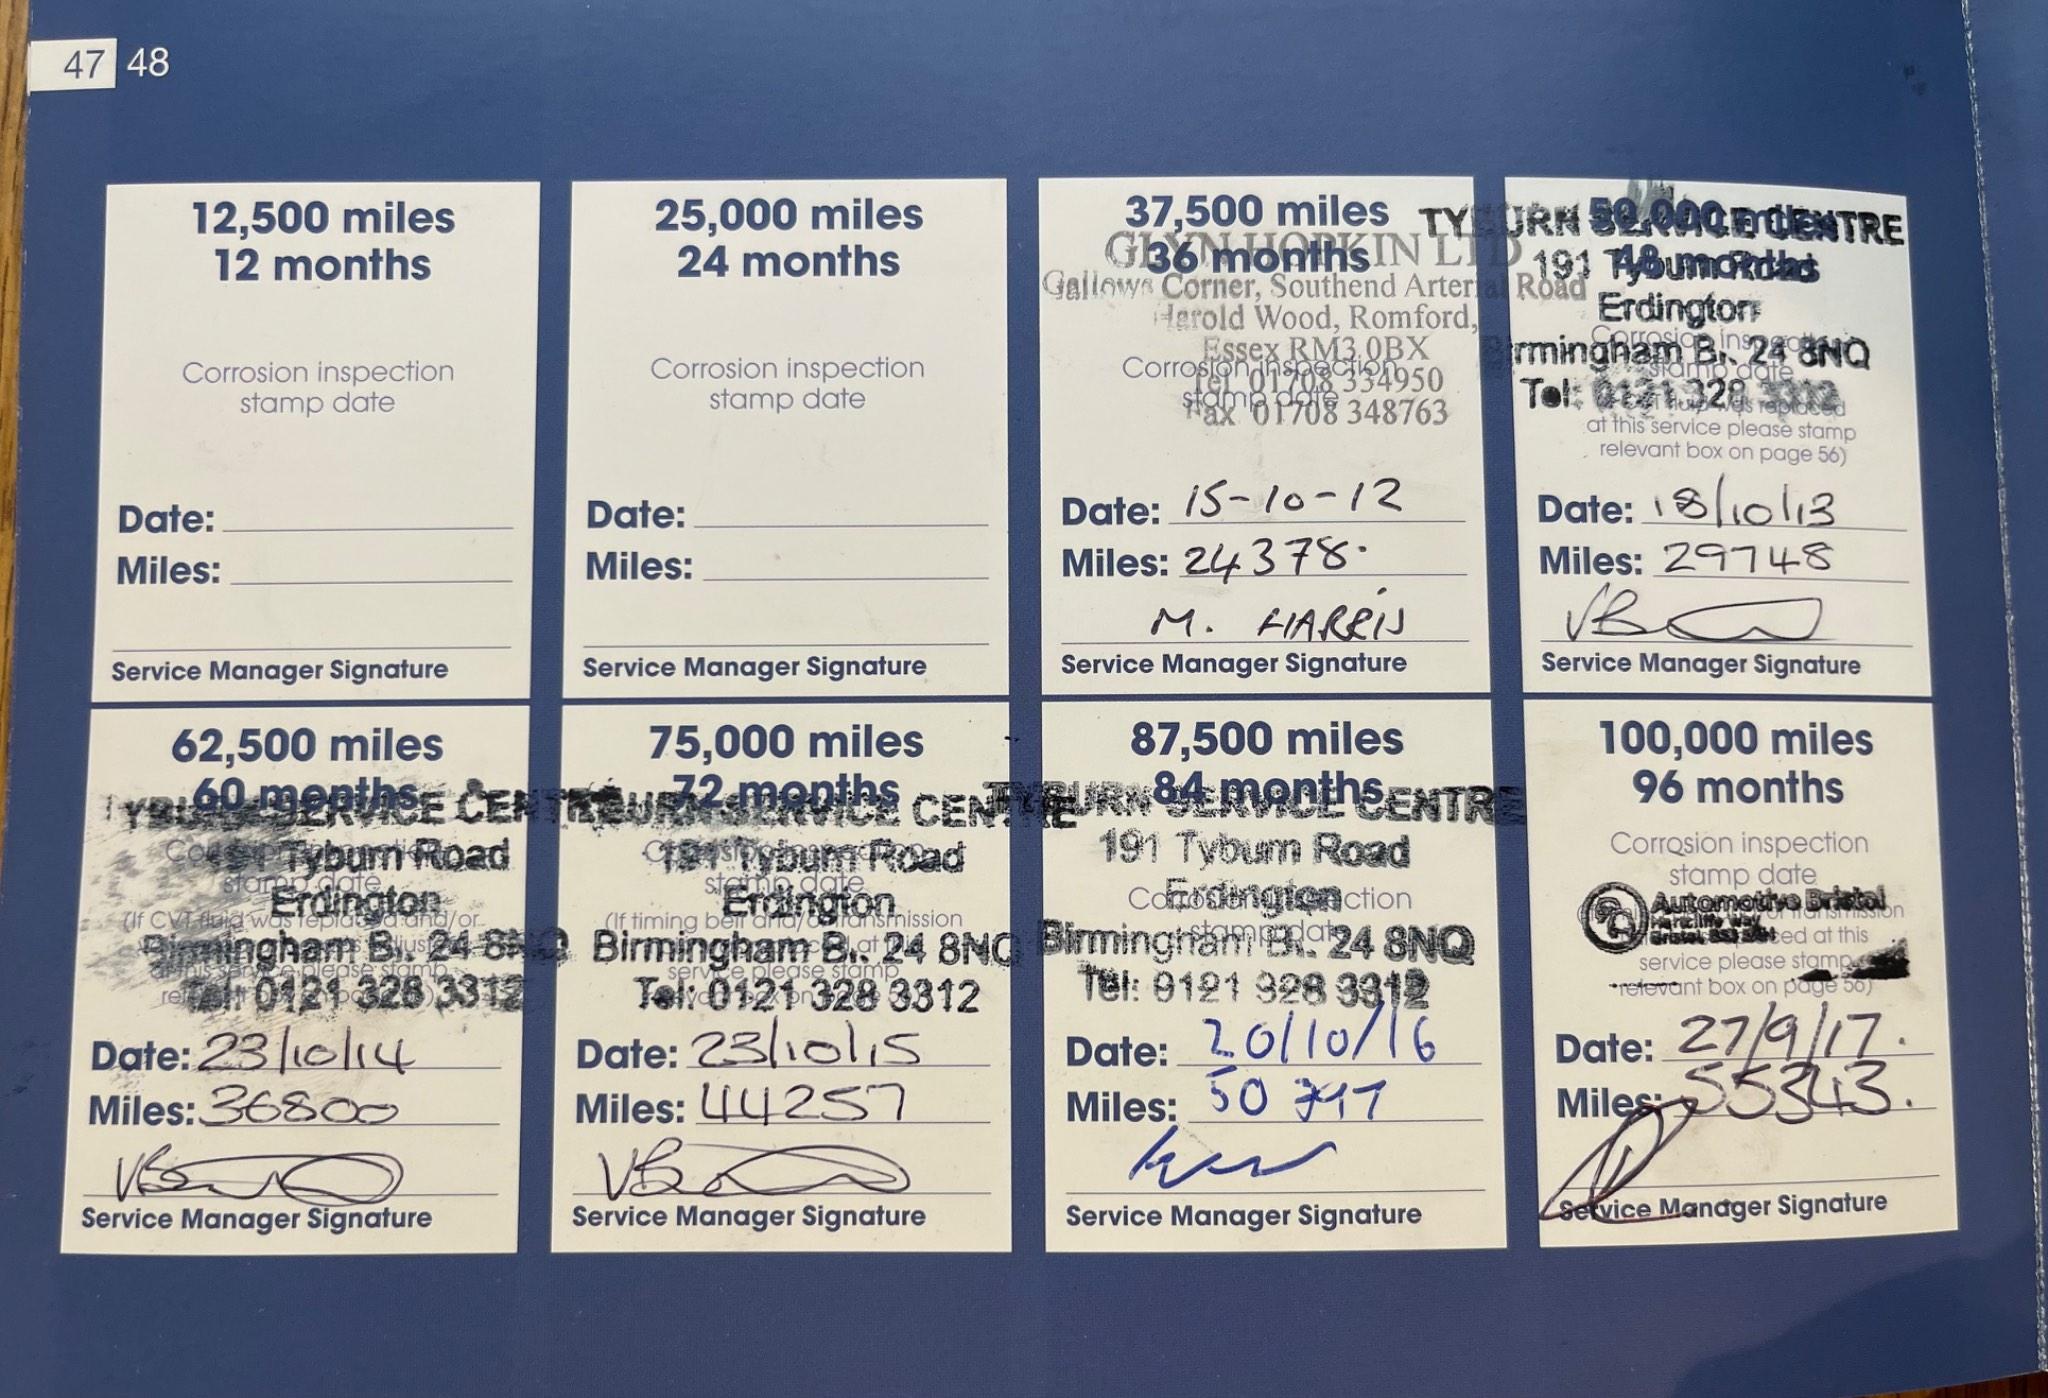 47 48
12,500 miles
12 months
Corrosion inspection
stamp date
Date:
Miles:
Service Manager Signature
25,000 miles
24 months
Corrosion inspection
stamp date
Date:
Miles:
Service Manager Signature
37,500 miles
36 months
GLYN HOPKIN LTD
Gallows Corner, Southend Arterial Road
Harold Wood, Romford,
Essex RM3 0BX
Corrosion inspection
Tel 01708 334950
stamp date
Fax 01708 348763
Date: 15-10-12
Miles: 24378
M. HARRIS
Service Manager Signature
50,000 miles
48 months
TYBURN SERVICE CENTRE
191 Tyburn Road
Erdington
Corrosion inspection
Birmingham B. 24 8NQ
stamp date
Tel: 0121 328 3312
fluid was replaced
at this service please stamp
relevant box on page 56)
Date: 18/10/13
Miles: 29748
Service Manager Signature
62,500 miles
60 months
TYBURN SERVICE CENTRE
191 Tyburn Road
stamp date
Erdington
(If CVT fluid was replaced and/or
Birmingham B. 24 8NQ
at this service please stamp
Tel: 0121 328 3312
Date: 23/10/14
Miles: 36800
Service Manager Signature
75,000 miles
72 months
TYBURN SERVICE CENTRE
191 Tyburn Road
stamp date
Erdington
(If timing belt and/or transmission
Birmingham B. 24 8NQ
service please stamp
Tel: 0121 328 3312
Date: 23/10/15
Miles: 44257
Service Manager Signature
87,500 miles
84 months
TYBURN SERVICE CENTRE
191 Tyburn Road
Erdington
Corrosion inspection
Birmingham B. 24 8NQ
stamp date
Tel: 0121 328 3312
Date: 20/10/16
Miles: 50
Service Manager Signature
100,000 miles
96 months
Corrosion inspection
stamp date
Automotive Bristol
transmission
Hartcliffe Way
Bristol
at this
service please stamp
relevant box on page 56)
Date: 27/9/17.
Miles: 55343.
Service Manager Signature